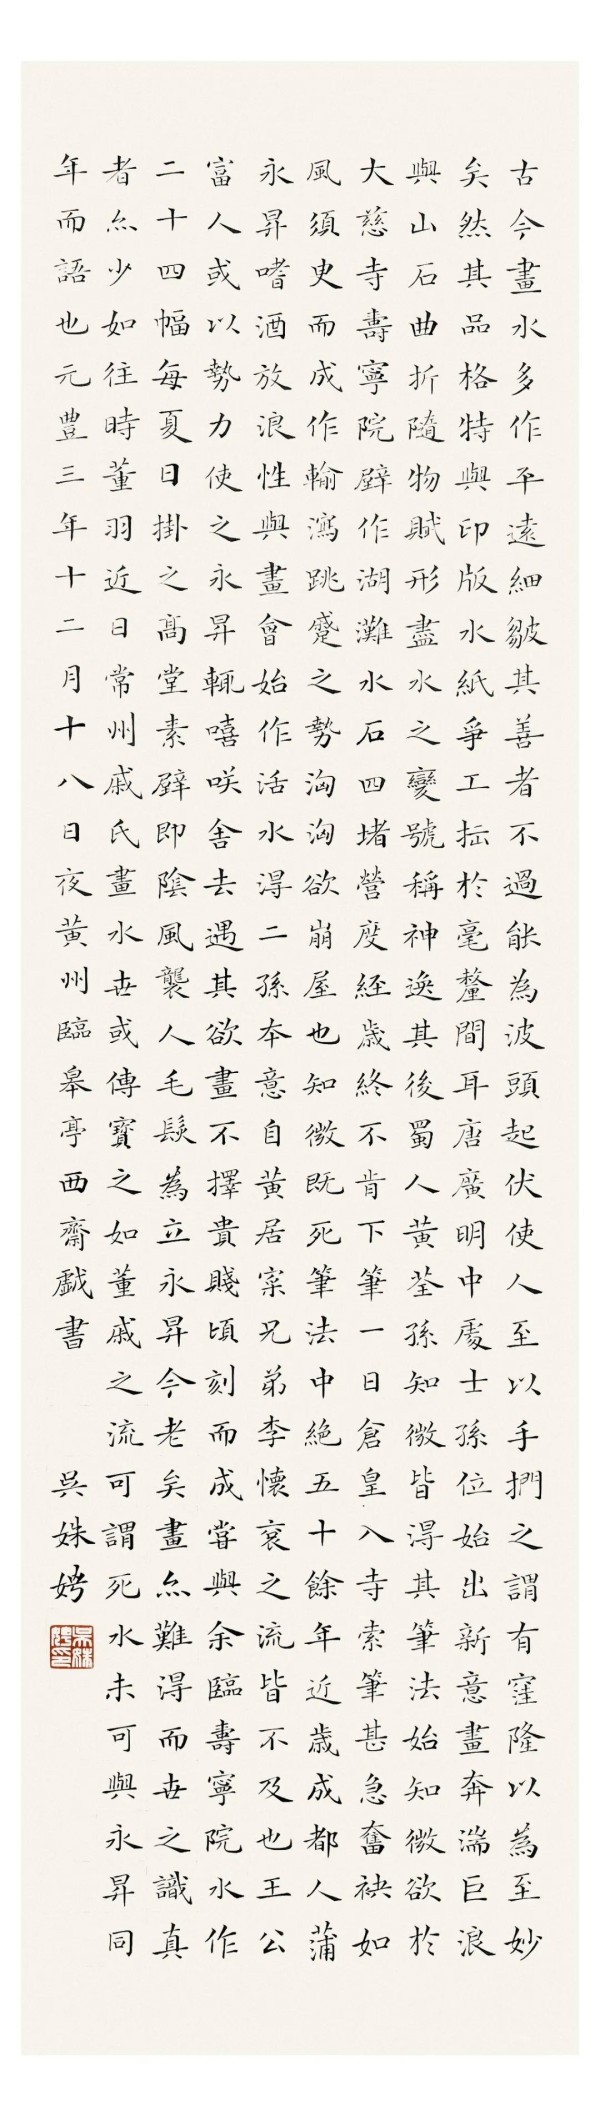 古今畫水多作平遠細皺其善者不過能為波頭起伏使人至以手捫之謂有窪隆以為至妙
矣然其品格特與印版水紙爭工拡於毫釐間耳唐廣明中處士孫位始出新意畫奔湍巨浪
與山石曲折隨物賦形盡水之變號稱神逸其後蜀人黃荃孫知微皆得其筆法始知微欲於
大慈寺壽寧院壁作湖灘水石四堵營度經歲終不肯下筆一日倉皇入寺索筆甚急奮袂如
風須臾而成作輸瀉跳蹙之勢洶洶欲崩屋也知微既死筆法中絕五十餘年近歲成都人蒲
永昇嗜酒放浪性與畫會始作活水得二孫本意自黃居寀兄弟李懷袞之流皆不及也王公
富人或以勢力使之永昇輒嘻咲舍去遇其欲畫不擇貴賤頃刻而成嘗與余臨壽寧院水作
二十四幅每夏日掛之高堂素壁即陰風襲人毛髮為立永昇今老矣畫亦難得而世之識真
者亦少如往時董羽近日常州戚氏畫水世或傳寶之如董戚之流可謂死水未可與永昇同
年而語也元豐三年十二月十八日夜黃州臨皋亭西齋戲書
吳姝娉